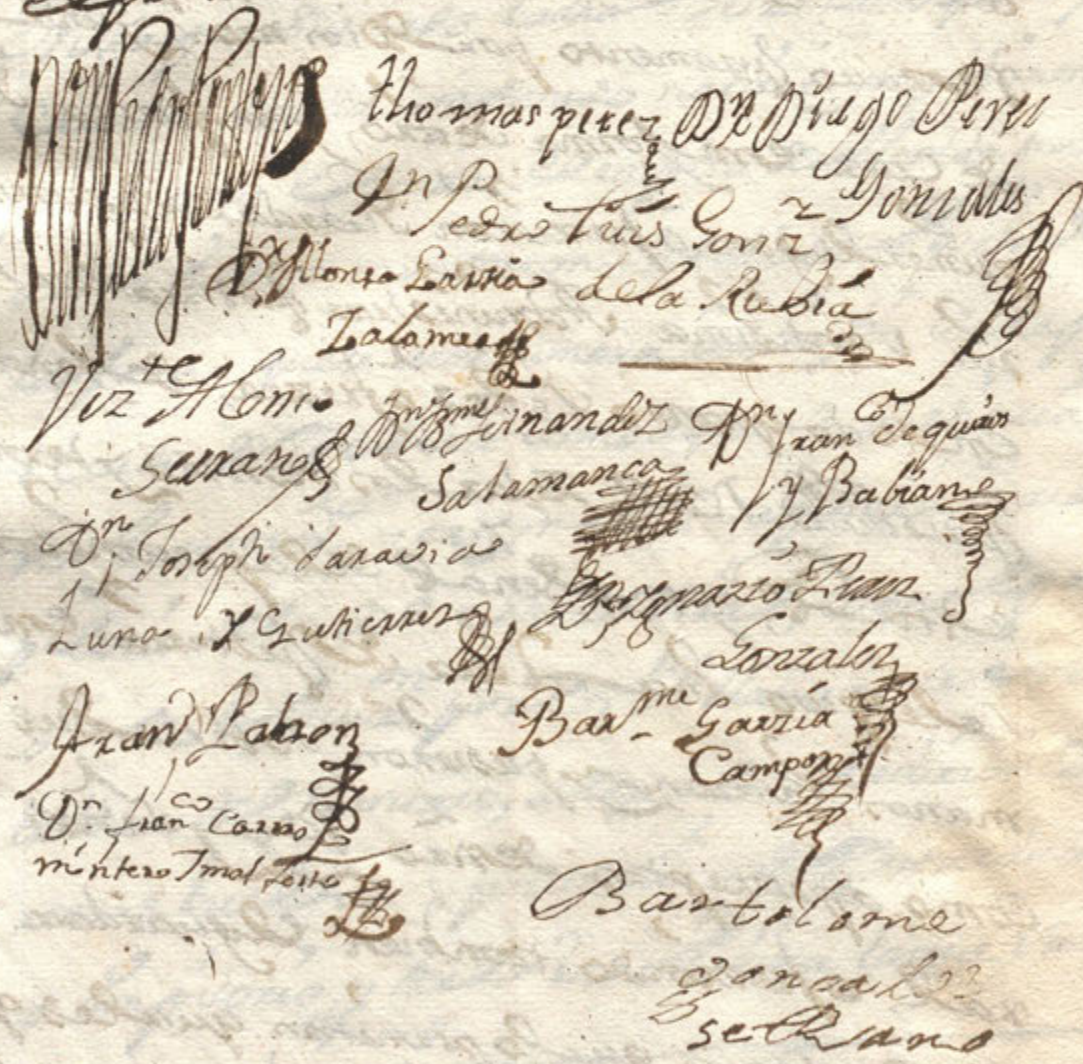 thomas perez Dn Diego Perez
Gonzales
Dn Pedro Luis Gonz
de la Rubia
Dn Alonso Garzia
Zalamea
Vizte Alonso
Serrano
Dn Bme Fernandez
Salamanca
Dn Franco de quiros
y Babiano
Dn Joseph
Luna y Gutierrez
Dn Ignazio Fran
Gonzalez
Fran Pabon
Barme Garzia
Campon
Dn Franco
Bartolome
gonzalez
serrano